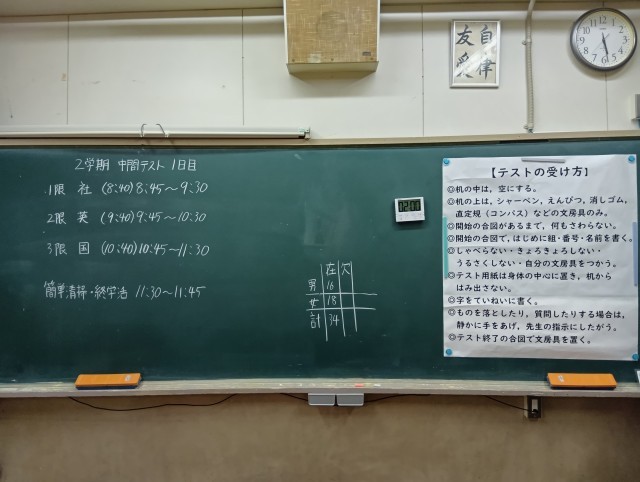 自律
友愛
2学期 中間テスト 1日目
1限 社 (8:40) 8:45～9:30
2限 英 (9:40) 9:45～10:30
3限 国 (10:40) 10:45～11:30
簡単清掃・終学活 11:30～11:45
在 欠
男 16
女 18
計 34
【テストの受け方】
◎机の中は、空にする。
◎机の上は、シャーペン、えんぴつ、消しゴム、
直定規（コンパス）などの文房具のみ。
◎開始の合図があるまで、何もさわらない。
◎開始の合図で、はじめに組・番号・名前を書く。
◎しゃべらない・きょろきょろしない・
うるさくしない・自分の文房具をつかう。
◎テスト用紙は身体の中心に置き、机から
はみ出さない。
◎字をていねいに書く。
◎ものを落としたり、質問したりする場合は、
静かに手をあげ、先生の指示にしたがう。
◎テスト終了の合図で文房具を置く。
12
1
2
3
4
5
6
7
8
9
10
11